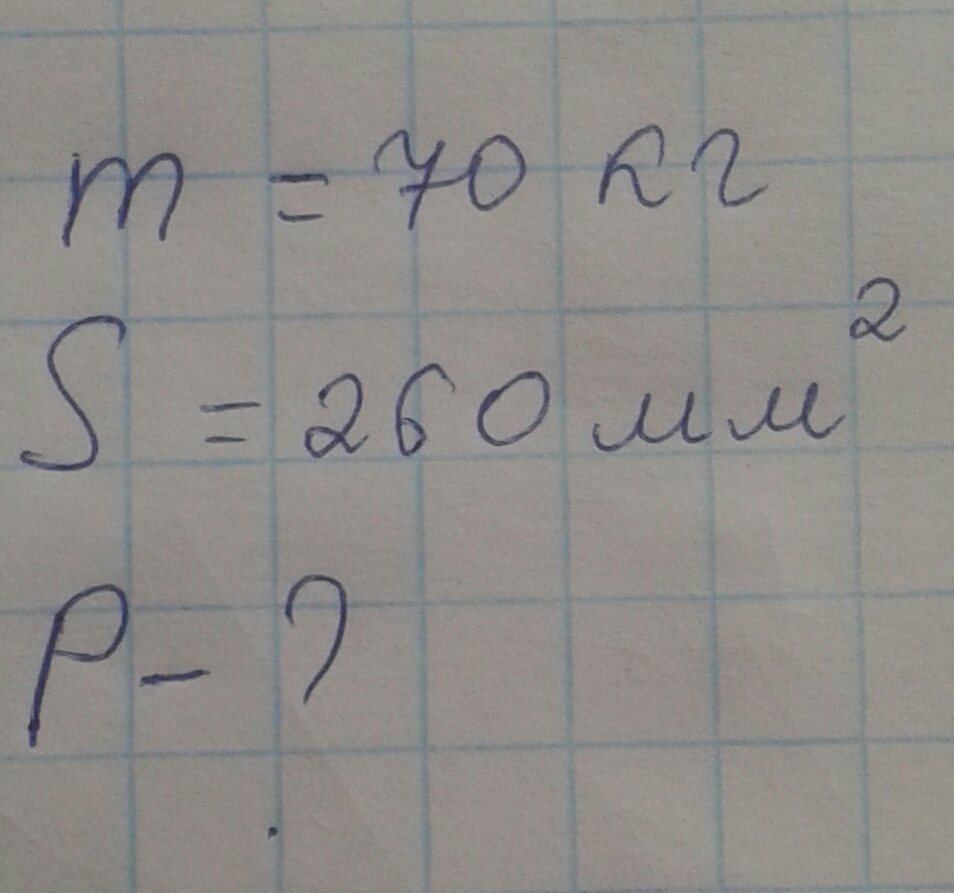 m = 70 кг
S = 260 мм²
p - ?